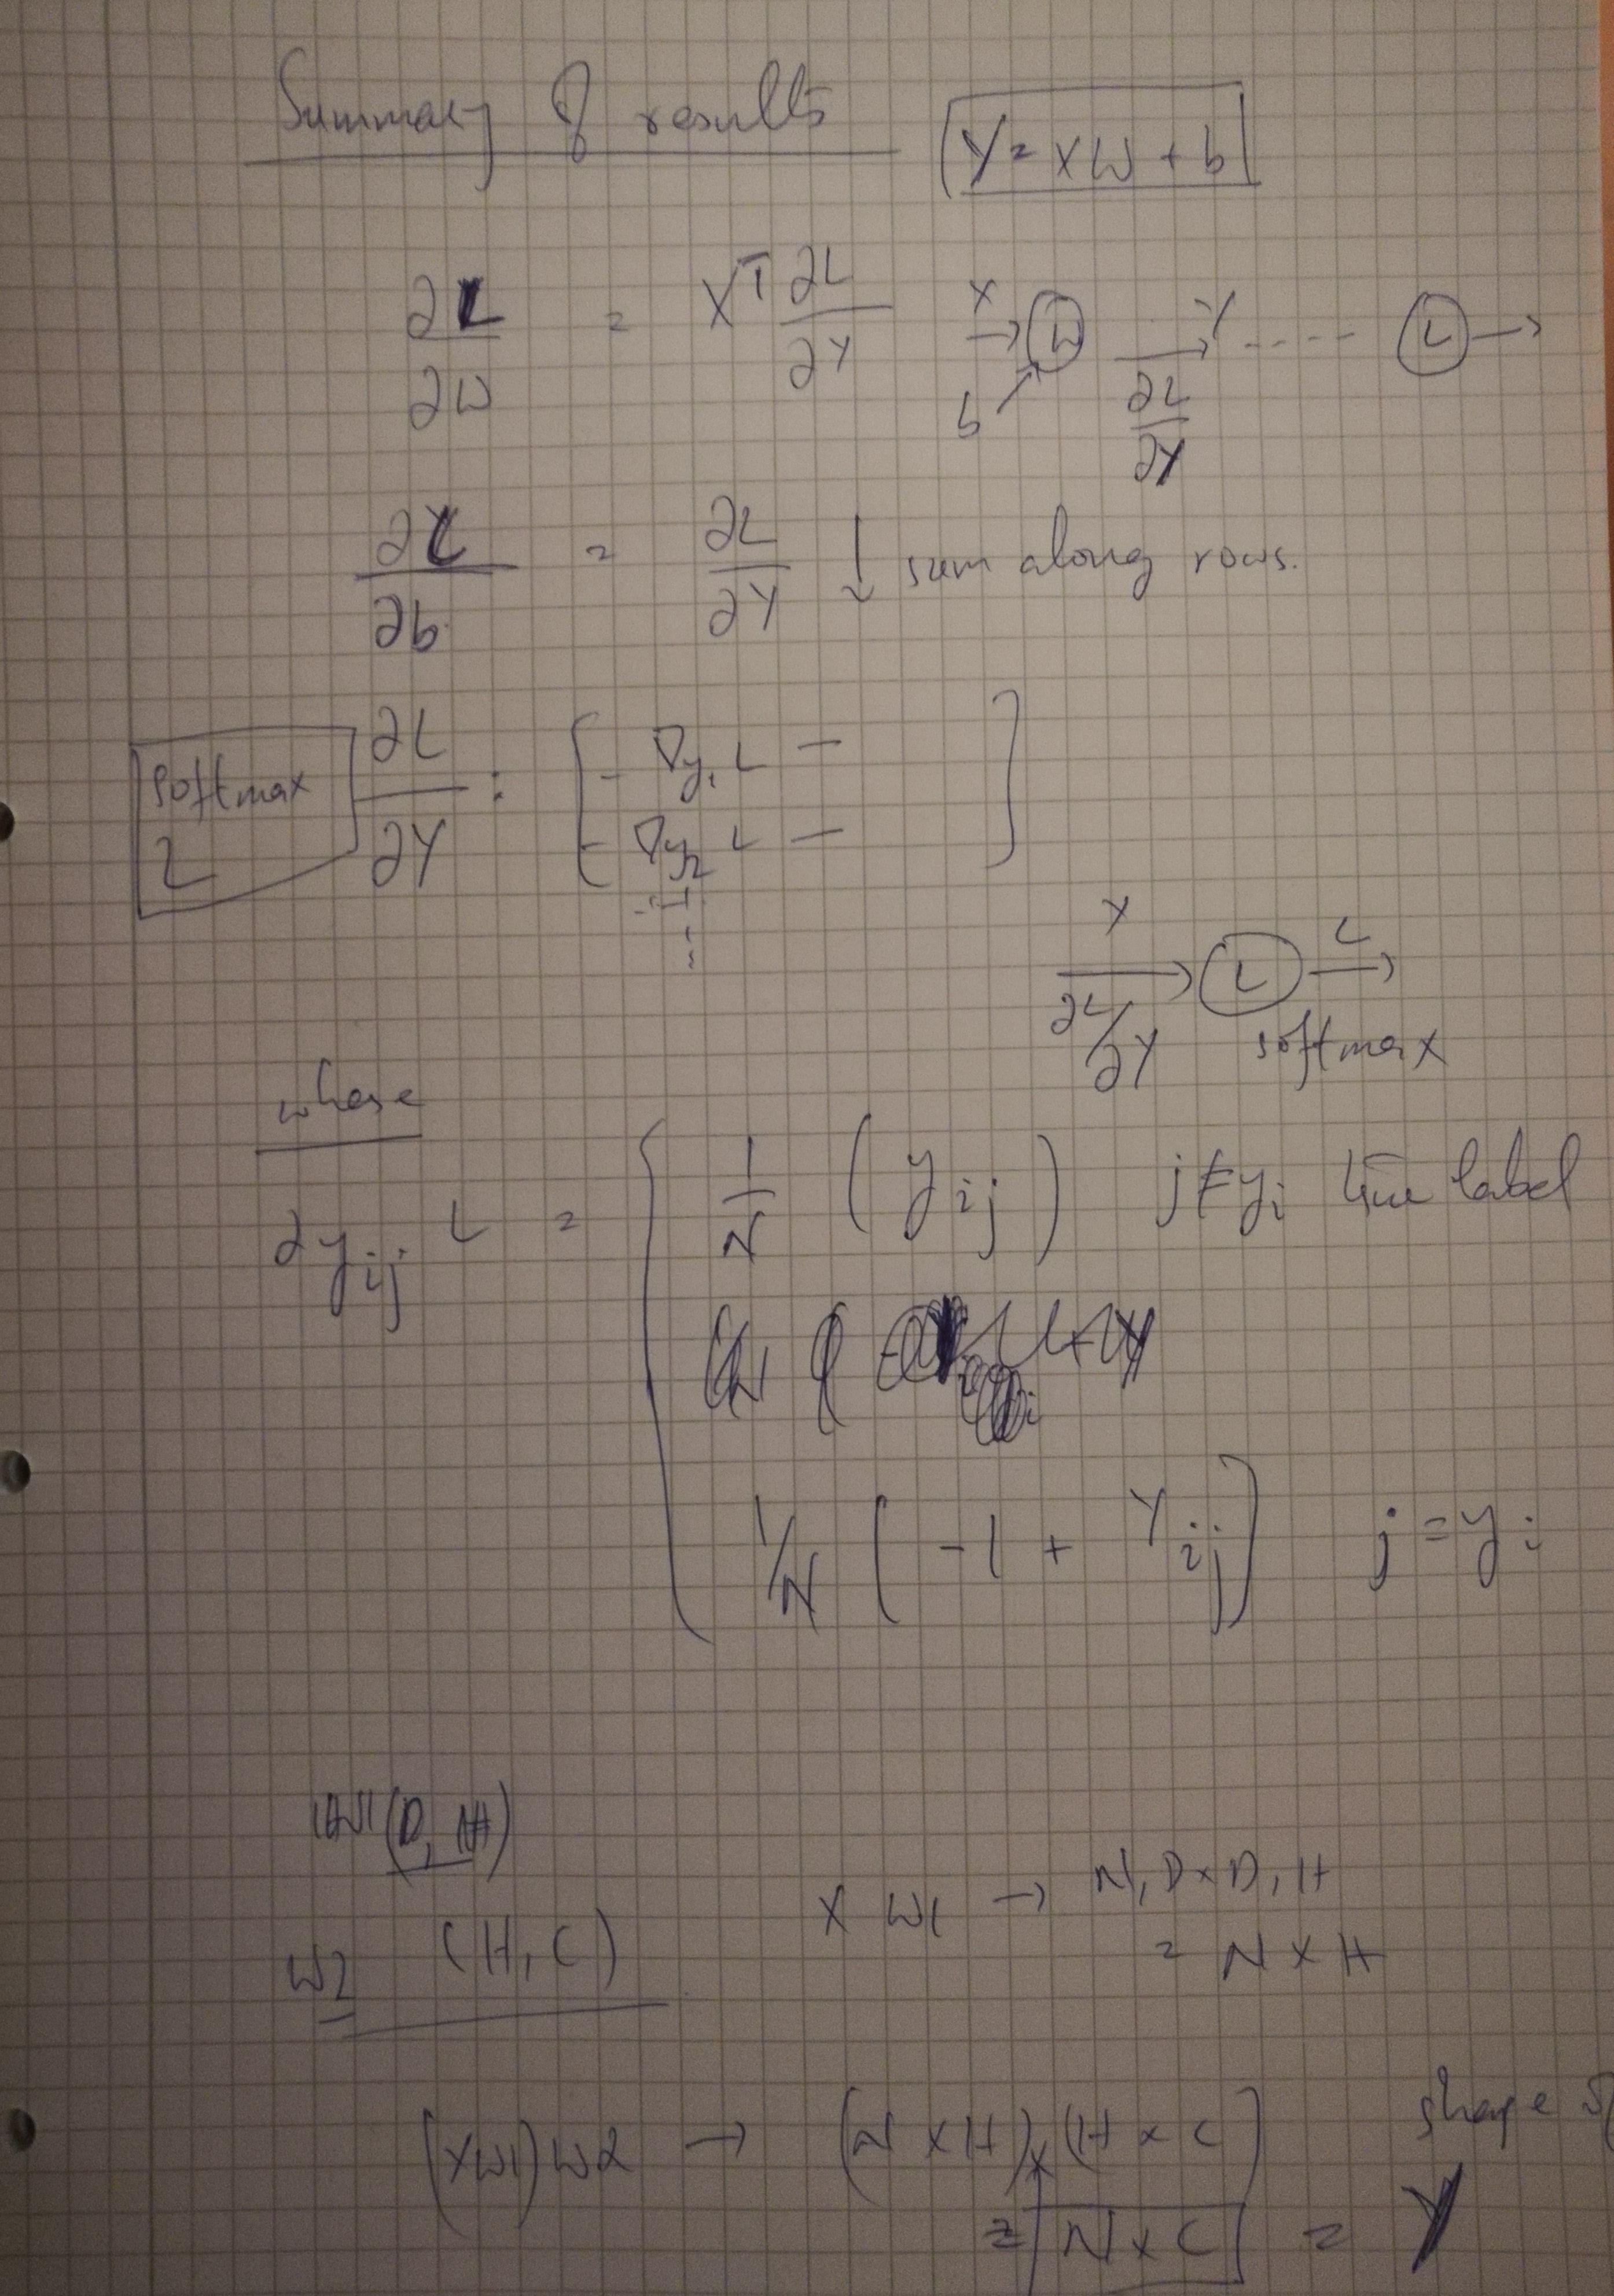 Summary of results Y = XW + b
∂L/∂W = X^T ∂L/∂Y X → W b Y → ∂L/∂Y ---- L →
∂L/∂b = ∂L/∂Y ↓ sum along rows.
softmax L ∂L/∂Y : [ - ∇y₁ L -
- ∇y₂ L - ]
Y → L L →
∂L/∂Y softmax
whose
∂y_ij L = { 1/N ( y_ij ) j ≠ y_i true label
1/N [ -1 + Y_ij ] j = y_i
W1 (D, H)
X W1 → N, D × D, H
W2 (H, C)
= N × H
(XW1)W2 → (N × H) × (H × C) shape of
= N × C = Y